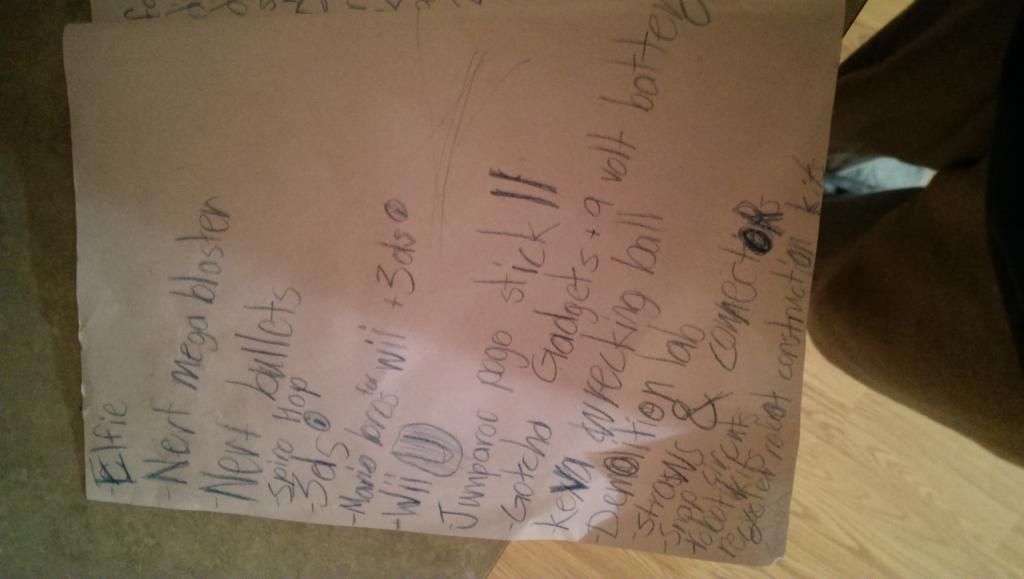 - Elfie
- Nerf mega blaster
- Nerf bullets
- Spiro Hop
- 3ds
- Mario bros for wii + 3ds
- Wii U
- Jumparoo pogo stick
- Gotcha Gadgets + 9 volt battery
- Keva wrecking ball
- Demolition lab
- straws & connectors
- Snap circut
construction kit